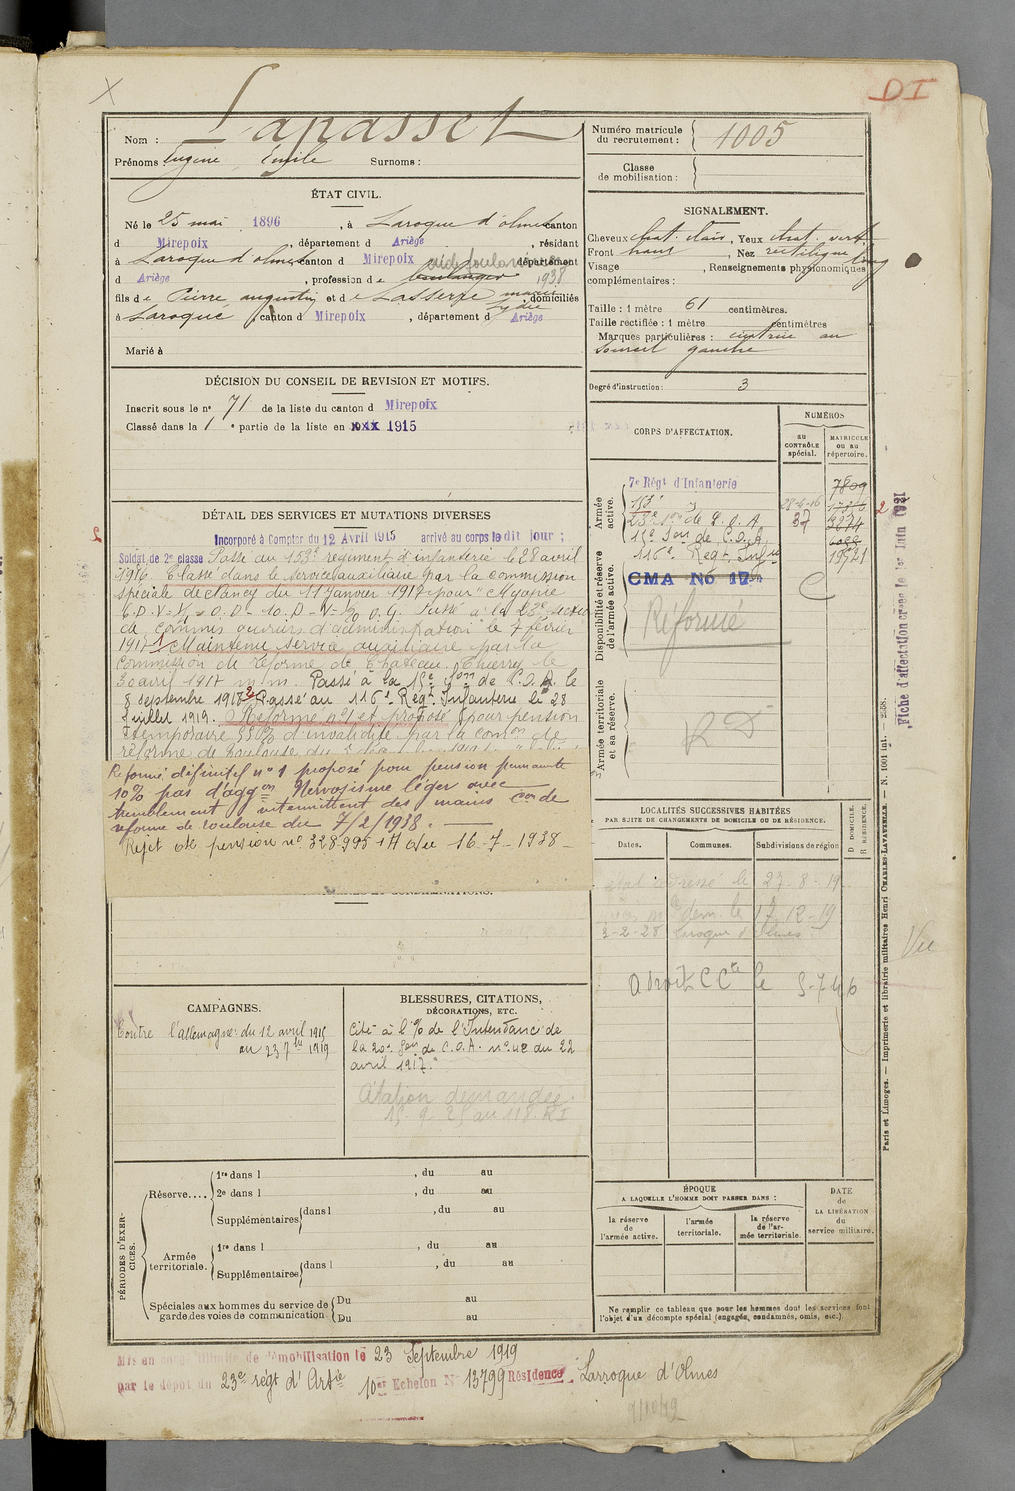 X
DI
Nom : Lapasset
Prénoms Eugène Emile Surnoms :
Numéro matricule du recrutement : 1005
Classe de mobilisation :
ÉTAT CIVIL.
Né le 25 mai 1896, à Laroque d'olmes canton
d Mirepoix, département d Ariège, résidant
à Laroque d'olmes canton d Mirepoix département
d Ariège, profession de boulanger 1938
fils de Pierre augustin et de Lasserre marie Lydie, domiciliés
à Laroque, canton d Mirepoix, département d Ariège
Marié à
SIGNALEMENT.
Cheveux chat. clair, Yeux chat. verts
Front Nez rectiligne long
Visage, Renseignements physionomiques
complémentaires :
Taille : 1 mètre 61 centimètres.
Taille rectifiée : 1 mètre centimètres
Marques particulières : cicatrice au
sourcil gauche
Degré d'instruction : 3
DÉCISION DU CONSEIL DE REVISION ET MOTIFS.
Inscrit sous le n° 71 de la liste du canton d Mirepoix
Classé dans la 1e partie de la liste en 1915
DÉTAIL DES SERVICES ET MUTATIONS DIVERSES
Incorporé à Compter du 12 Avril 1915 arrivé au corps le dit jour ;
Soldat de 2e classe Passé au 153e régiment d'infanterie le 28 avril
1916. Classé dans le service auxiliaire par la commission
spéciale de clancy du 11 janvier 1917 pour "Myopie
Passé à la 23e section
de commis ouvriers d'administration le 7 février
1917 Maintenu service auxiliaire par la
commission de réforme de Chateau-Thierry le
30 avril 1917 m/m. Passé à la 15e Son de C.O.A. le
8 septembre 1918 Passé au 116e Régt Infanterie le 28
juillet 1919. Réformé n°1 et proposé pour pension
temporaire d'invalidité par la comon de
réforme de Toulouse du
Réformé définitif n° 1 proposé pour pension permanente
10% pas d'aggon Nervosisme léger avec
tremblement intermittent des mains Con de
réforme de Toulouse du 7/2/1938.
Rejet de pension n° 328995 du 16-7-1938
CORPS D'AFFECTATION.
NUMÉROS
au CONTRÔLE spécial.
MATRICULE ou au répertoire.
Armée active.
7e Régt d'Infanterie 7809
153e 28-4-16
23e Son de C.O.A 37
15e Son de C.O.A
116e Régt Infie 19521
Disponibilité et réserve de l'armée active.
CMA No 17
Réformé C
Armée territoriale et sa réserve.
RD
Fiche d'affectation créée le 1er Juin 1921
LOCALITÉS SUCCESSIVES HABITÉES
PAR SUITE DE CHANGEMENTS DE DOMICILE OU DE RÉSIDENCE.
Dates. Communes. Subdivisions de région D DOMICILE. R RÉSIDENCE.
redressé le 27-8-19
dem. le 17-12-19
2-2-28 Laroque d'olmes
A droit CCte le 5-7-46
Vu
CAMPAGNES.
Contre l'allemagne : du 12 avril 1915
au 23 7bre 1919
BLESSURES, CITATIONS,
DÉCORATIONS, ETC.
Cité à l'% de l'Intendance de
la 20e Son de C.O.A. n° 42 du 22
avril 1917."
Citation demandée
15-9-25 au 118. RI
PÉRIODES D'EXERCICES.
Réserve.... 1re dans l , du au
2e dans l , du au
Supplémentaires dans l , du au
Armée territoriale. 1re dans l , du au
Supplémentaires dans l , du au
Spéciales aux hommes du service de garde des voies de communication Du au
Du au
ÉPOQUE
A LAQUELLE L'HOMME DOIT PASSER DANS :
la réserve de l'armée active.
l'armée territoriale.
la réserve de l'armée territoriale.
DATE de LA LIBÉRATION du service militaire.
Ne remplir ce tableau que pour les hommes dont les services font
l'objet d'un décompte spécial (engagés, condamnés, omis, etc.).
Paris et Limoges. — Imprimerie et librairie militaires Henri CHARLES-LAVAUZELLE. — N. 1001 int. — 2-58.
Mis en congé illimité de démobilisation le 23 Septembre 1919
par le dépôt du 23e régt d'Artie 10e Echelon N° 13799 Résidence Larroque d'Olmes